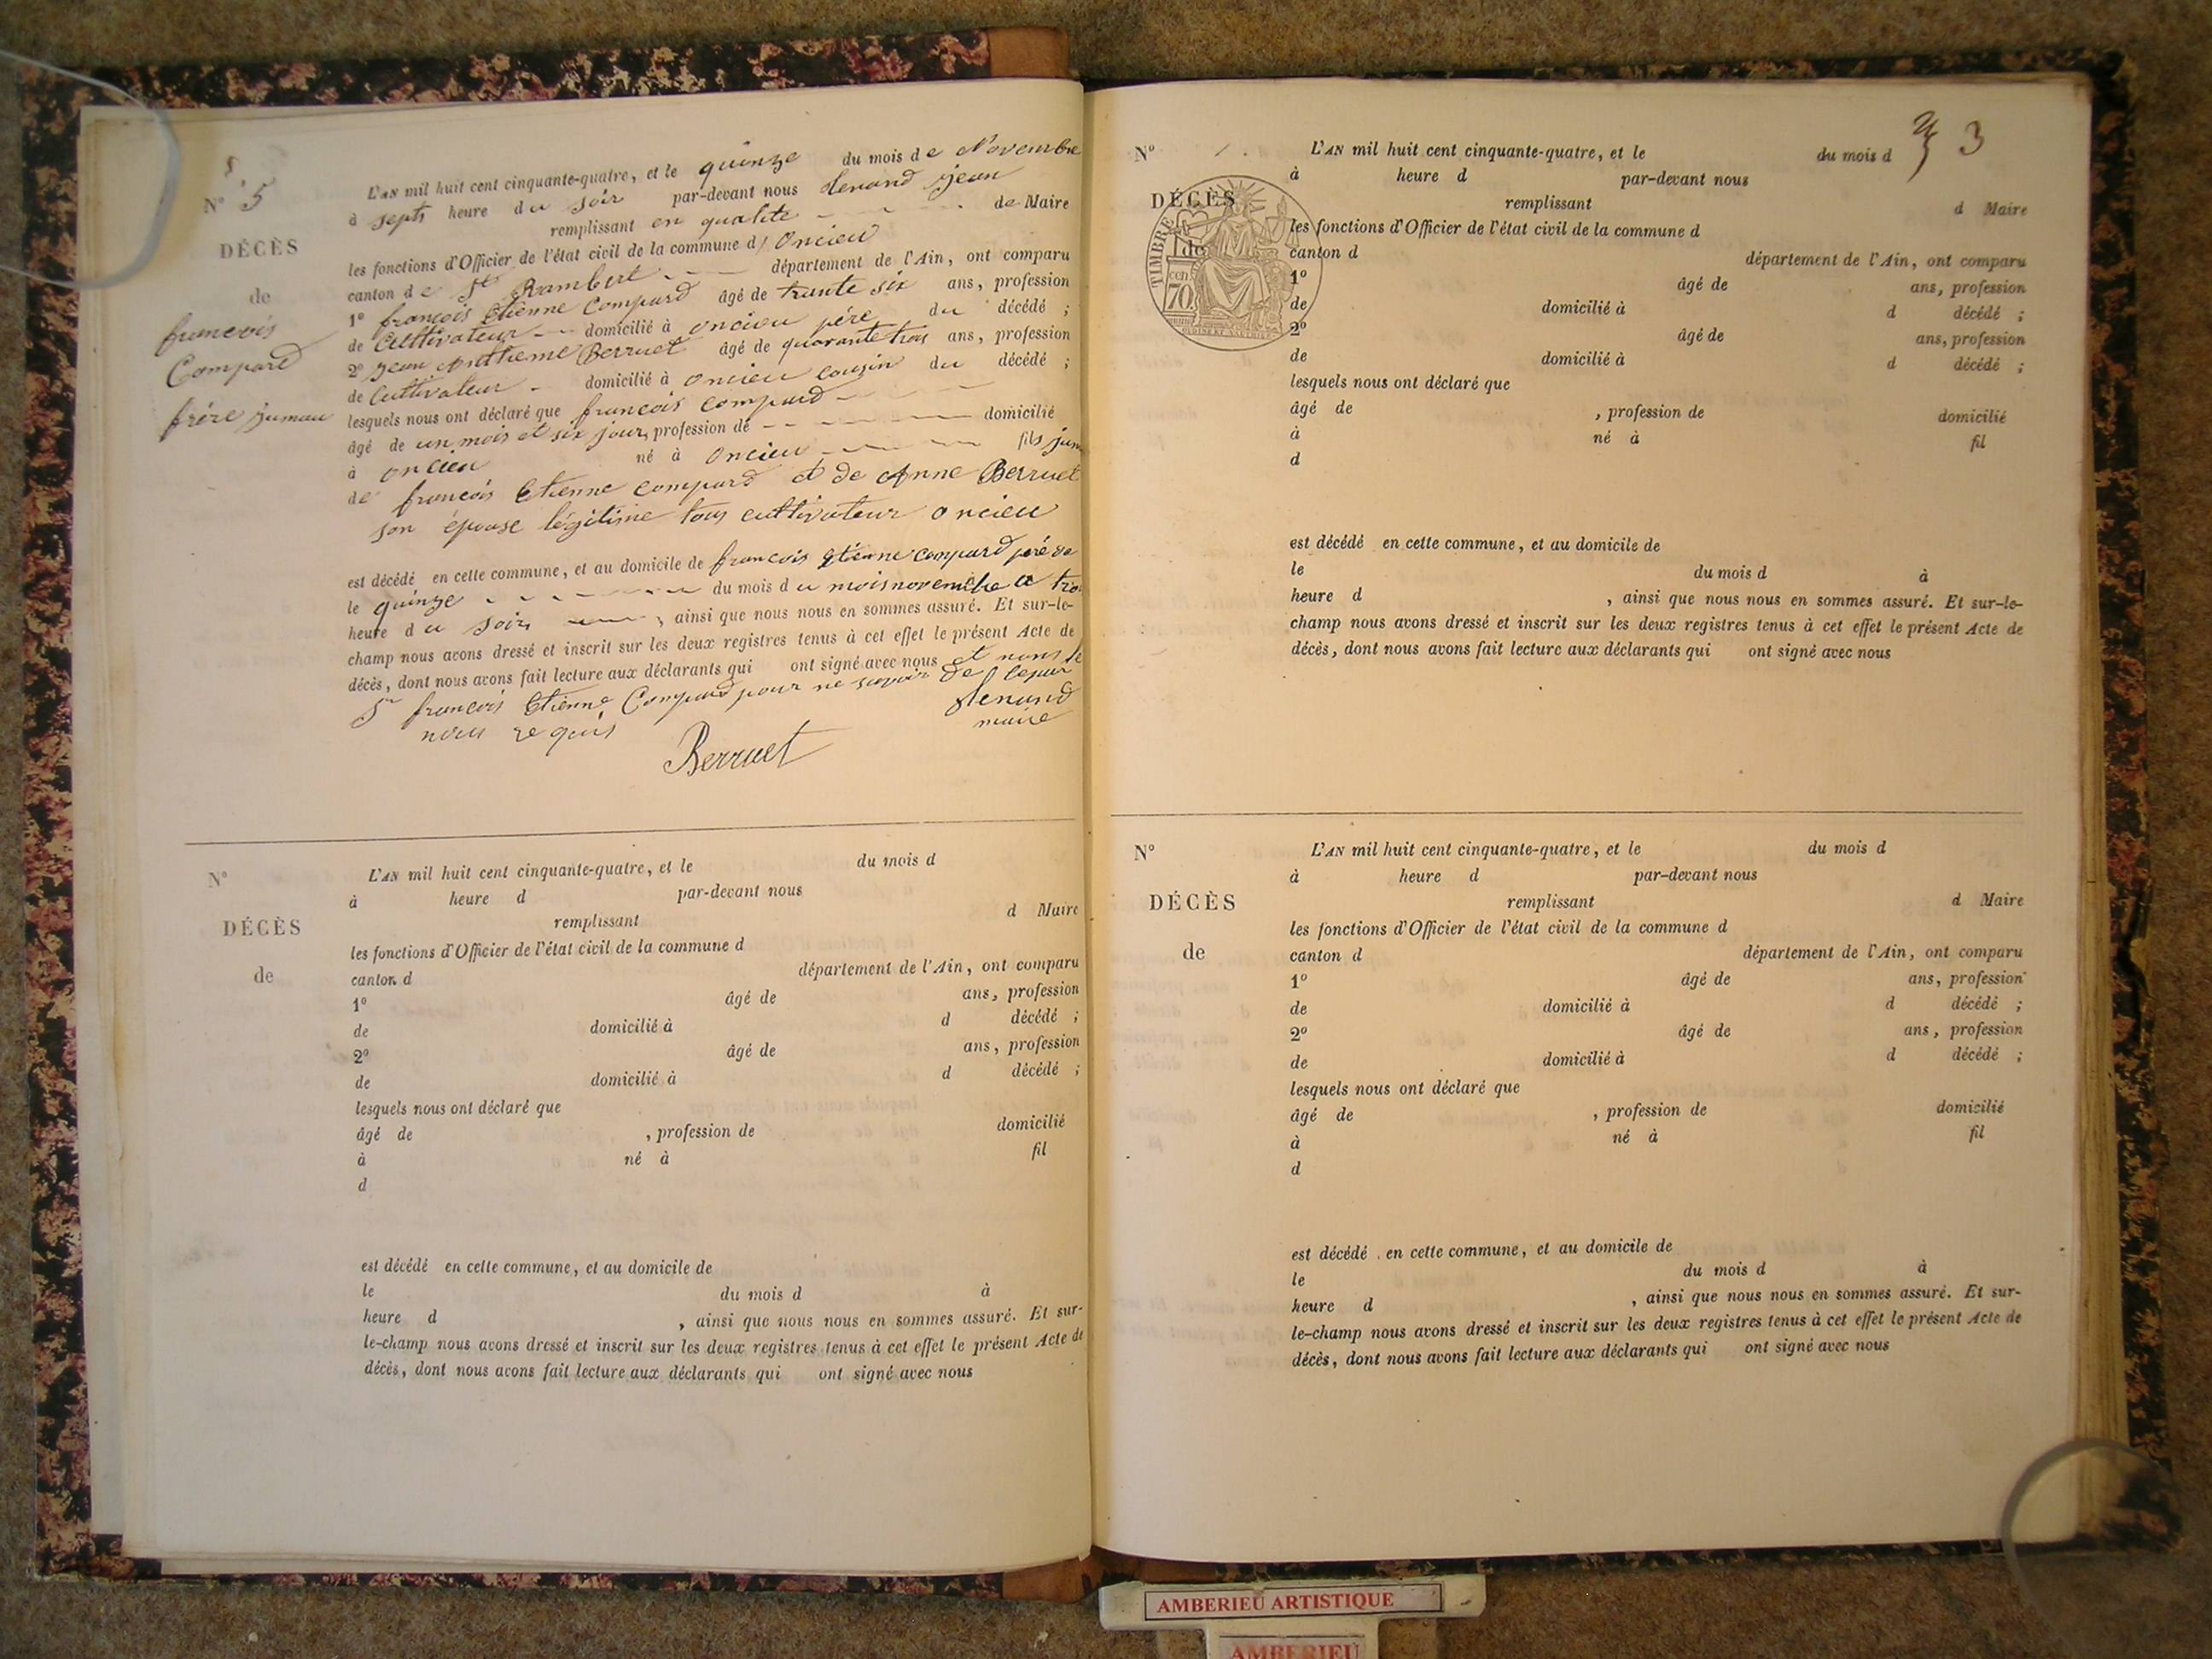 N° 5
DÉCÈS
de
francois
Compard
frère jumau
L'AN mil huit cent cinquante-quatre, et le quinze du mois de Novembre
à septs heure du soir par-devant nous jean
remplissant en qualite de Maire
les fonctions d'Officier de l'état civil de la commune d Oncieu
canton de St Rambert département de l'Ain, ont comparu
1° francois Etienne Compard âgé de trante six ans, profession
de Cultivateur domicilié à oncieu père du décédé ;
2° jean Anthieme Berruet âgé de quarante trois ans, profession
de Cultivateur domicilié à oncieu cousin du décédé ;
lesquels nous ont déclaré que francois compard
âgé de un mois et six jours, profession de domicilié
à oncieu né à Oncieu fils jum
de francois Etienne compard et de Anne Berruet
son épouse légitime tous cultivateur oncieu
est décédé en cette commune, et au domicile de francois Etienne compard père de
le quinze du mois du mois novembre a tro
heure du soir, ainsi que nous nous en sommes assuré. Et sur-le-
champ nous avons dressé et inscrit sur les deux registres tenus à cet effet le présent Acte de
décès, dont nous avons fait lecture aux déclarants qui ont signé avec nous et nons le
Sr francois Etienne Compard pour ne savoir de
nous requis
maire
Berruet
N°
DÉCÈS
de
L'AN mil huit cent cinquante-quatre, et le du mois d
à heure d par-devant nous
remplissant d Maire
les fonctions d'Officier de l'état civil de la commune d
canton d département de l'Ain, ont comparu
1° âgé de ans, profession
de domicilié à d décédé ;
2° âgé de ans, profession
de domicilié à d décédé ;
lesquels nous ont déclaré que
âgé de , profession de domicilié
à né à fil
d
est décédé en cette commune, et au domicile de
le du mois d à
heure d , ainsi que nous nous en sommes assuré. Et sur-
le-champ nous avons dressé et inscrit sur les deux registres tenus à cet effet le présent Acte de
décès, dont nous avons fait lecture aux déclarants qui ont signé avec nous
3
N°
DÉCÈS
de
TIMBRE
70
L'AN mil huit cent cinquante-quatre, et le du mois d
à heure d par-devant nous
remplissant d Maire
les fonctions d'Officier de l'état civil de la commune d
canton d département de l'Ain, ont comparu
1° âgé de ans, profession
de domicilié à d décédé ;
2° âgé de ans, profession
de domicilié à d décédé ;
lesquels nous ont déclaré que
âgé de , profession de domicilié
à né à fil
d
est décédé en cette commune, et au domicile de
le du mois d à
heure d , ainsi que nous nous en sommes assuré. Et sur-le-
champ nous avons dressé et inscrit sur les deux registres tenus à cet effet le présent Acte de
décès, dont nous avons fait lecture aux déclarants qui ont signé avec nous
N°
DÉCÈS
de
L'AN mil huit cent cinquante-quatre, et le du mois d
à heure d par-devant nous
remplissant d Maire
les fonctions d'Officier de l'état civil de la commune d
canton d département de l'Ain, ont comparu
1° âgé de ans, profession
de domicilié à d décédé ;
2° âgé de ans, profession
de domicilié à d décédé ;
lesquels nous ont déclaré que
âgé de , profession de domicilié
à né à fil
d
est décédé en cette commune, et au domicile de
le du mois d à
heure d , ainsi que nous nous en sommes assuré. Et sur-
le-champ nous avons dressé et inscrit sur les deux registres tenus à cet effet le présent Acte de
décès, dont nous avons fait lecture aux déclarants qui ont signé avec nous
AMBERIEU ARTISTIQUE
AMBERIEU